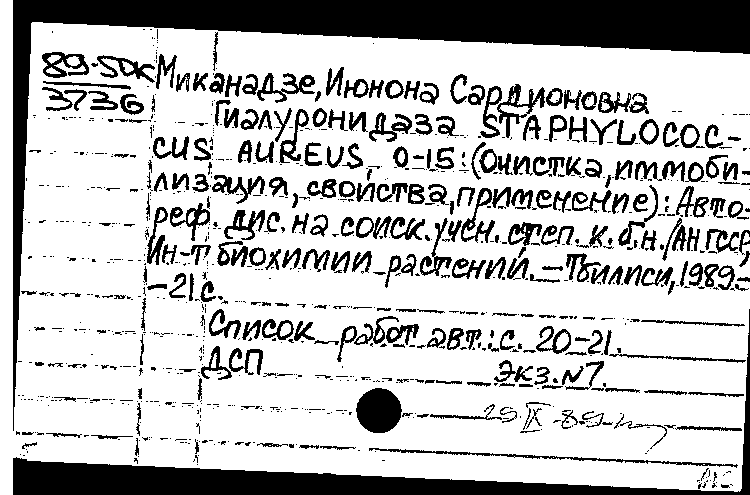 89-5ДК Миканадзе, Июнона Сардионовна
3736
Гиалуронидаза STAPHYLOCOC-
CUS AUREUS O-15: (Очистка, иммоби-
лизация, свойства, применение): Авто-
реф. дис. на соиск. учен. степ. к.б.н. / АН ГССР,
Ин-т биохимии растений. — Тбилиси, 1989-
-21 с.
Список работ авт.: с. 20-21.
ДСП Экз. N7.
29 IX-89-